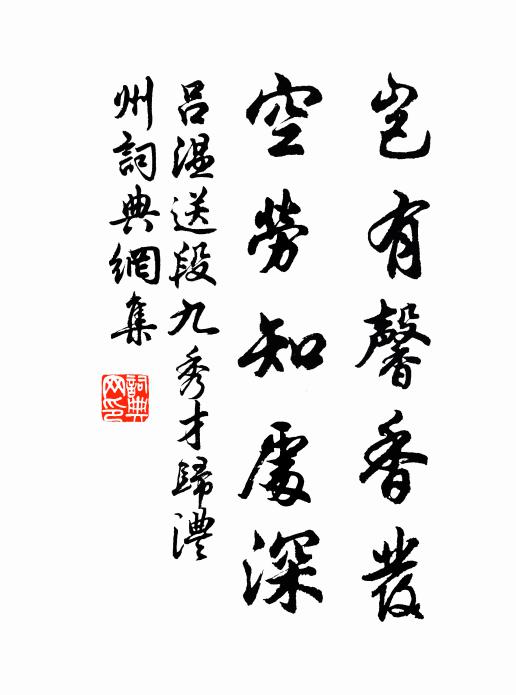 豈有馨香發
空勞知處深
呂溫送段九秀才歸澧
州詞典網集
詞典
网印